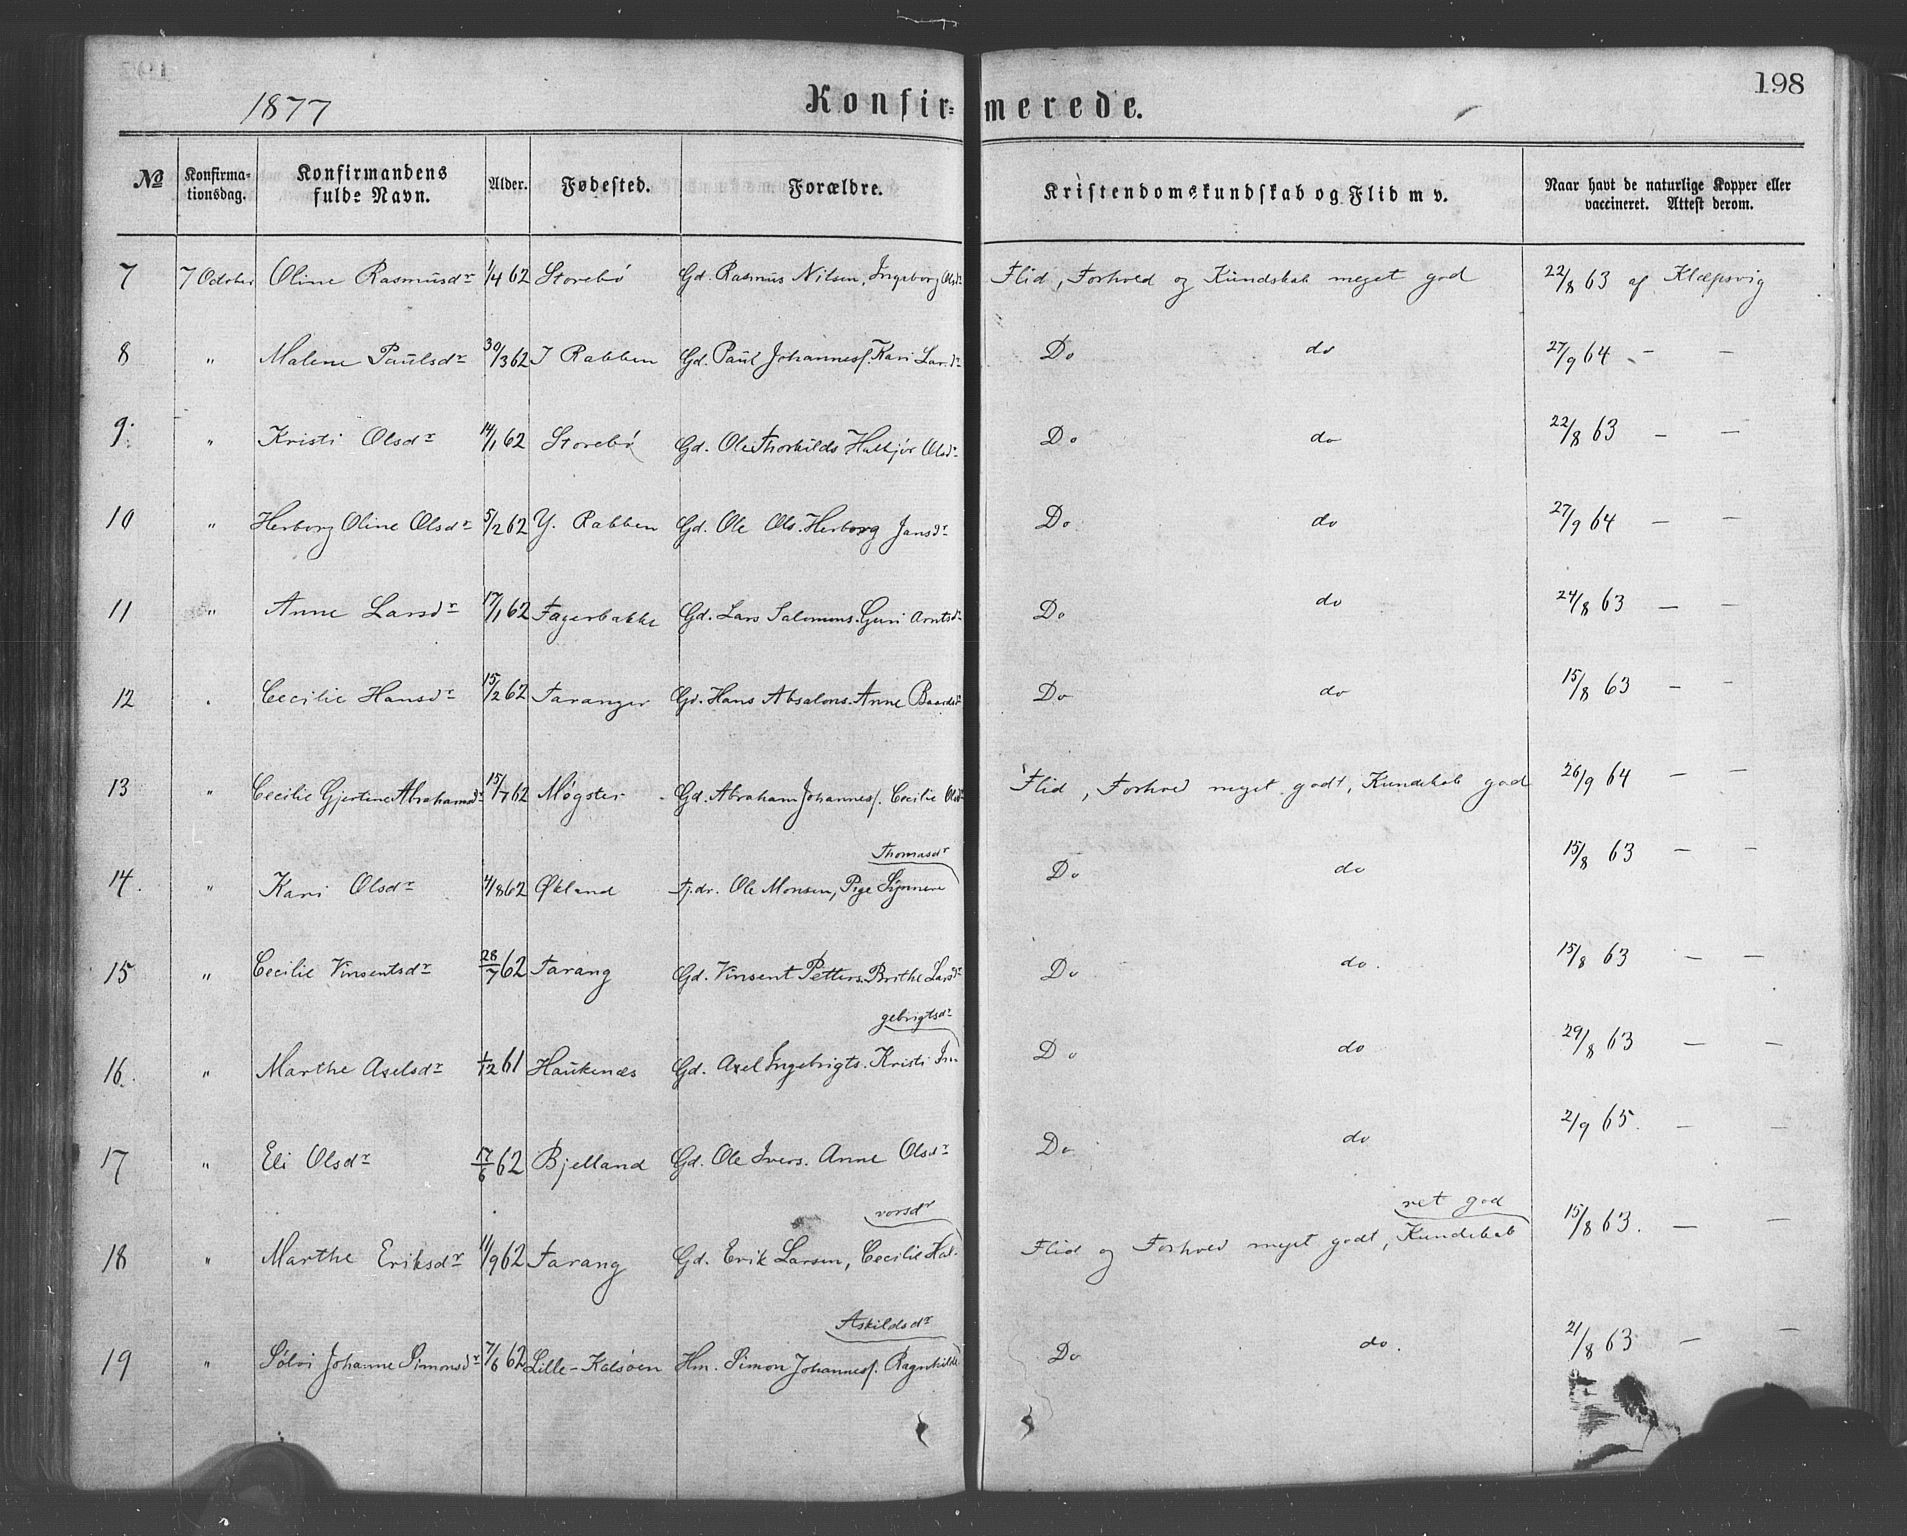 198
1877
Konfir-merede.
№ Konfirma-tionsdag. Konfirmandens fulde Navn. Alder. Fødested. Forældre. Kristendomskundskab og Flid m v. Naar havt de naturlige Kopper eller vaccineret. Attest derom.
7 7 October Oline Rasmusdr 1/4 62 Storebø Gd. Rasmus Nilsen, Ingeborg Olsdr Flid, Forhold og Kundskab meget god 22/8 63 af Klæpsvig
8 " Malene Paulsdr 30/3 62 I Rabben Gd. Paul Johannesf. Kari Larsdr Do do 27/9 64 — —
9. " Kristi Olsdr 14/1 62 Storebø Gd. Ole Thorkilds Halkjør Olsdr Do do 22/8 63 — —
10 " Herborg Oline Olsdr 5/2 62 Y. Rabben Gd. Ole Ols. Herborg Jansdr Do. do 27/9 64 — —
11 " Anne Larsdr 17/1 62 Fagerbakke Gd. Lars Salomons. Guri Arntsdr Do do 24/8 63 — —
12 " Cecilie Hansdr 15/2 62 Taranger Gd. Hans Absalons. Anne Baardsdr Do do 15/8 63 — —
13 " Cecilie Gjertine Abrahamsdr 15/7 62 Møgster Gd. Abraham Johannesf. Cecilie Olsdr Flid, Forhold meget godt, Kundskab god 26/9 64 — —
Thomasdr
14. " Kari Olsdr 4/8 62 Økland tj.dr. Ole Monsen, Pige Synneve Do do 15/8 63 — —
15 " Cecilie Vinsentsdr 28/7 62 Tarang Gd. Vinsent Petters. Brithe Larsdr Do do. 15/8 63 — —
gebrigtsdr
16. " Marthe Axelsdr 1/12 61 Haukenæs Gd. Axel Ingebrigts. Kristi In- Do do 29/8 63 — —
17 " Eli Olsdr 17/6 62 Bjelland Gd. Ole Ivers. Anne Olsdr Do. do 2/9 65. — —
vorsdr ret god
18 " Marthe Eriksdr 11/9 62 Tarang Gd. Erik Larsen, Cecilie Hal- Flid og Forhold meget godt, Kundskab 15/8 63. — —
Askildsdr
19 " Sølvi Johanne Simonsdr 7/6 62 Lille-Kalsøen Hm. Simon Johannesf. Ragnhilde Do do. 21/8 63 — —